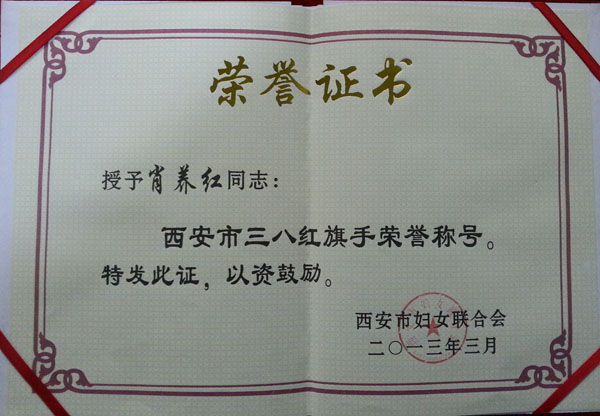 荣誉证书
授予肖养红同志：
西安市三八红旗手荣誉称号。
特发此证，以资鼓励。
西安市妇女联合会
二〇一三年三月